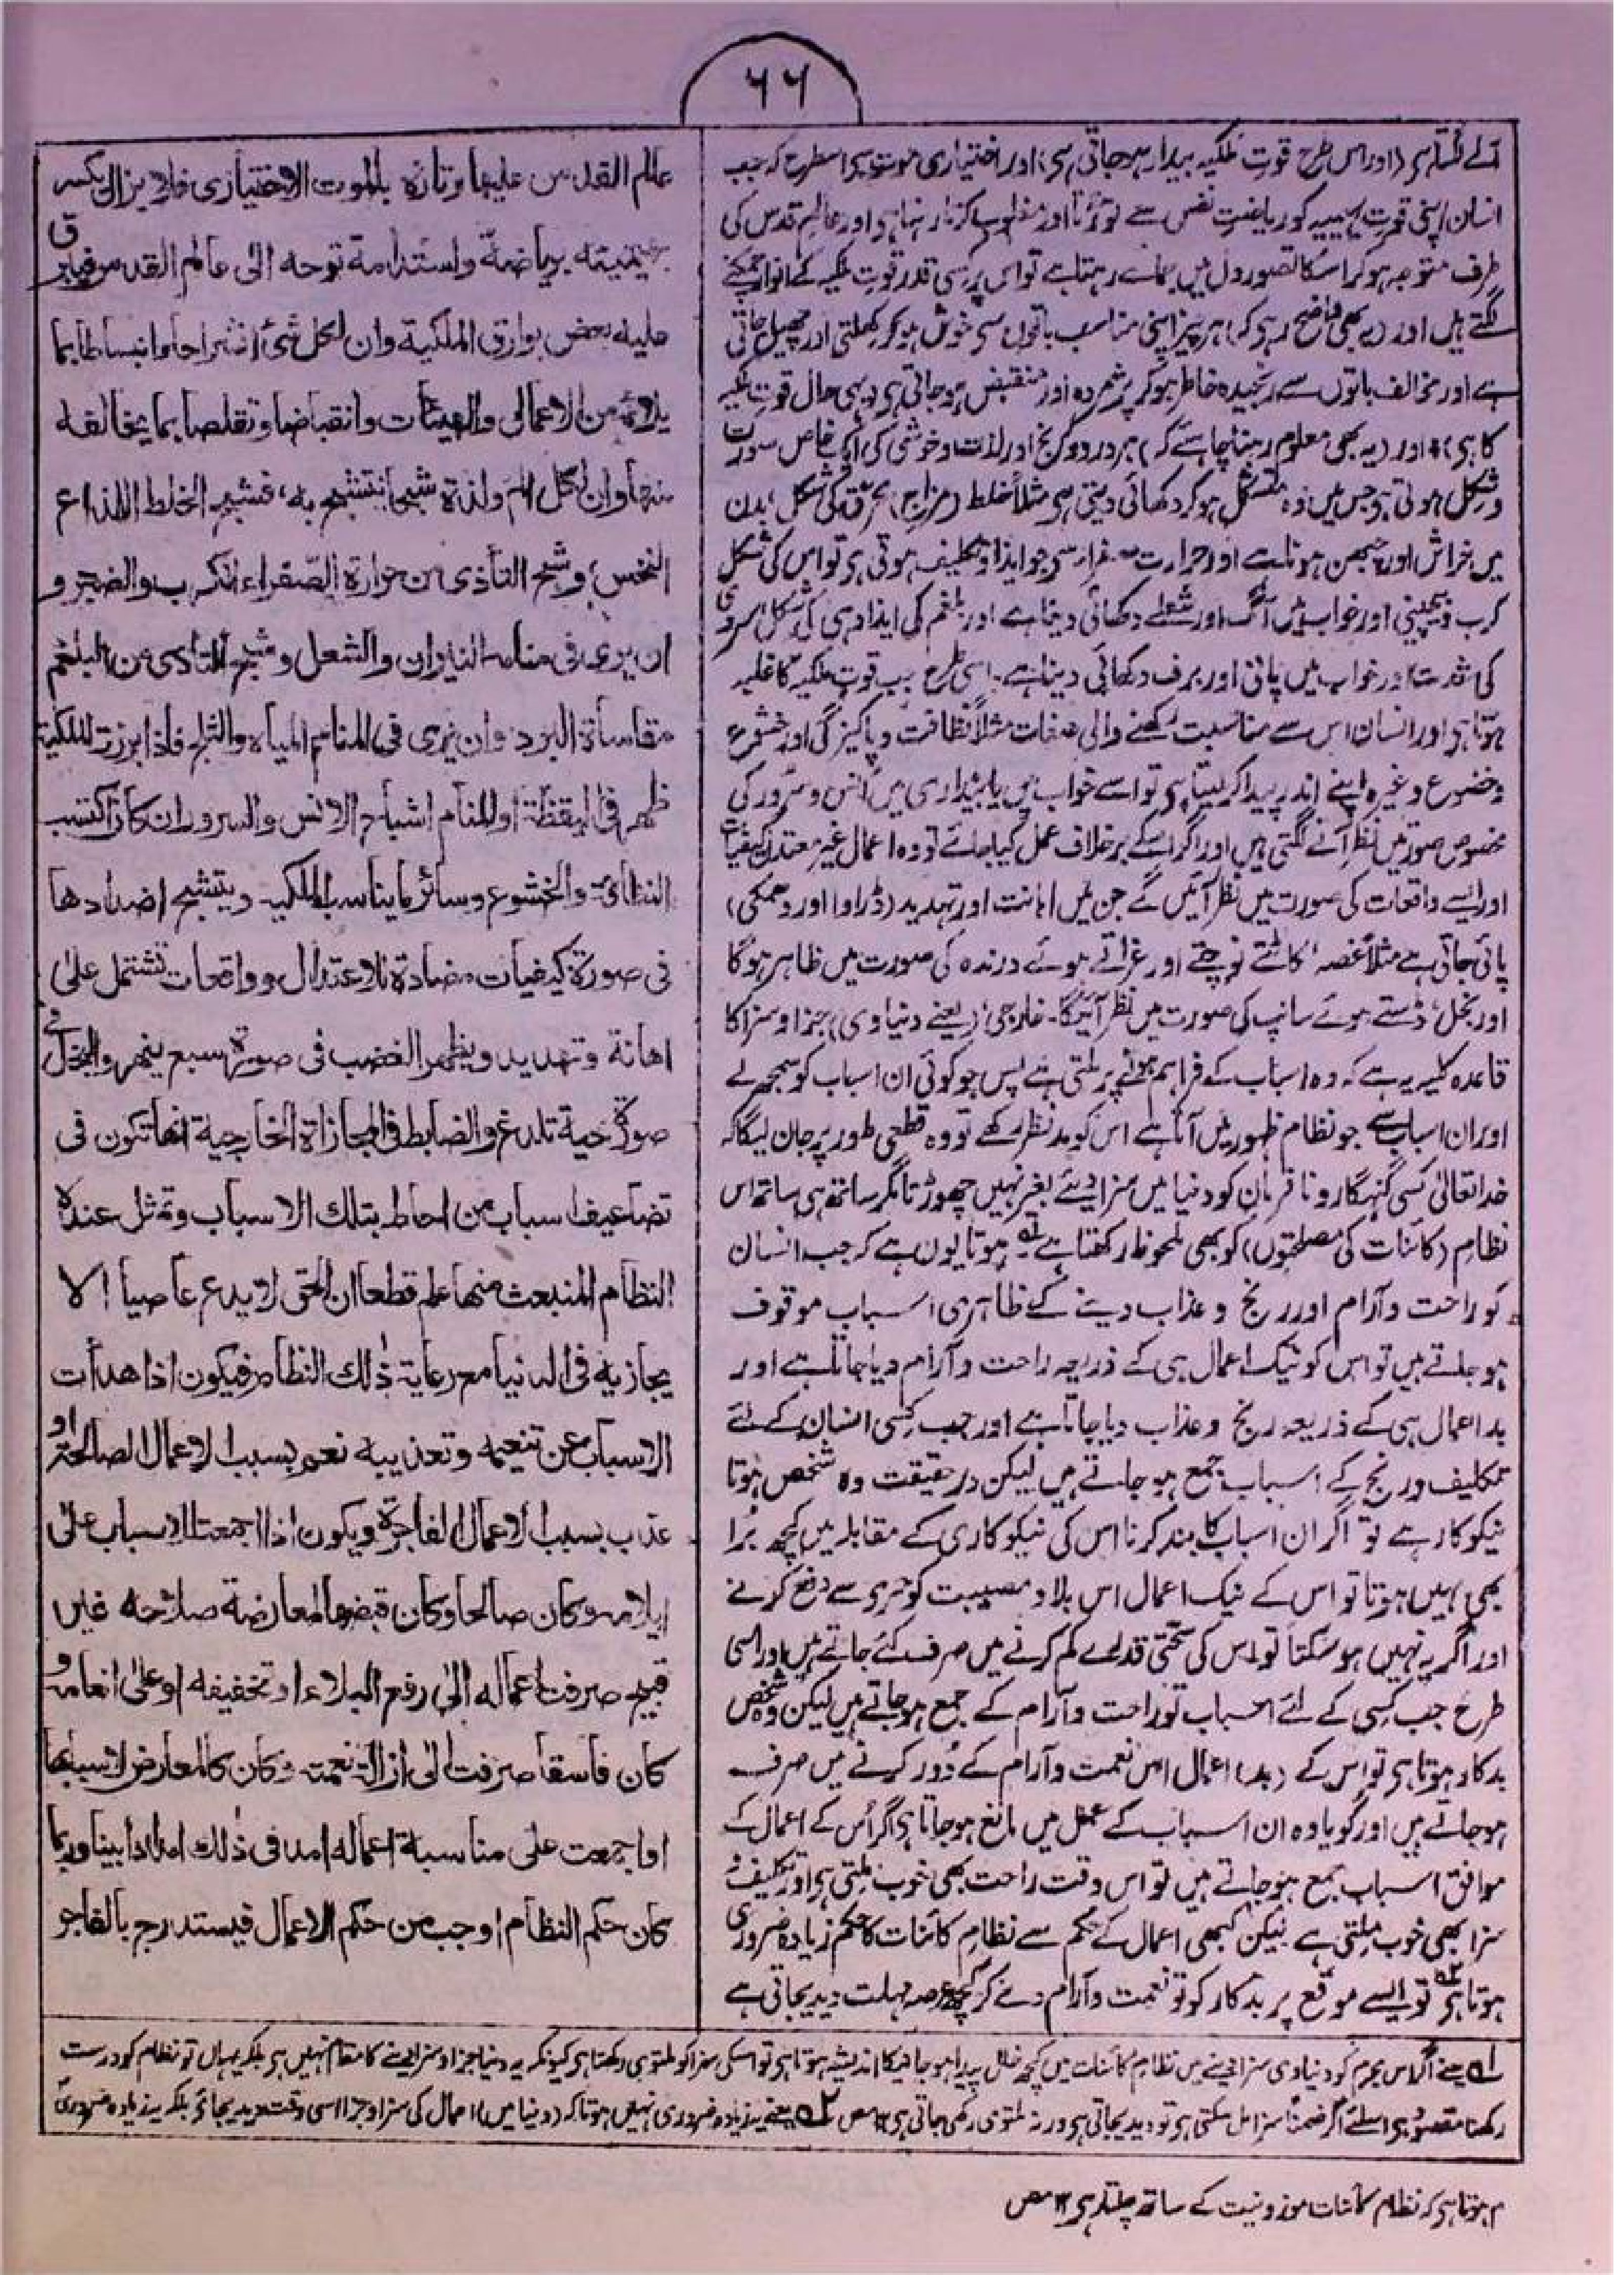 ۶۶
آنے لگتا ہی (اور اس طرح قوتِ ملکیہ بیدار ہو جاتی ہی) اور اختیاری موت سی اسطرح کہ جب
انسان اپنی قوتِ بہیمیہ کو ریاضتِ نفس سے توڑتا اور مغلوب کرتا رہتا ہی اور عالمِ قدس کی
طرف متوجہ ہو کر اسکا تصور دل میں جمائے رہتا ہے تو اس پر کسی قدر قوتِ ملکیہ کے انوار چمکنے
لگتے ہیں اور (یہ بھی واضح رہی کہ) ہر چیز اپنی مناسب باتوں سی خوش ہو کر کھلتی اور پھیل جاتی
ہے اور مخالف باتوں سے رنجیدہ خاطر ہو کر پژمردہ اور منقبض ہو جاتی ہی (یہی حال قوتِ ملکیہ
کا ہی) اور (یہ بھی معلوم رہنا چاہئے کہ) ہر درد و رنج اور لذت و خوشی کی ایک خاص صورت
و شکل ہوتی ہی جس میں وہ متشکل ہو کر دکھائی دیتی ہی مثلاً خلط (مزاج) محرق کی شکل بدن
میں خراش اور چبھن ہونا ہے اور حرارت صفرا سی جو ایذا و تکلیف ہوتی ہی تو اس کی شکل
کرب و بیچینی اور خواب میں آگ اور شعلے دکھائی دینا ہے اور بلغم کی ایذا دہی کی شکل سردی
کی شدت اور خواب میں پانی اور برف دکھائی دینا ہے۔ اسی طرح جب قوتِ ملکیہ کا غلبہ
ہوتا ہی اور انسان اس سے مناسبت رکھنے والی صفات مثلاً نظافت و پاکیزگی اور خشوع
و خضوع وغیرہ اپنے اندر پیدا کر لیتا ہی تو اسے خواب میں یا بیداری میں اُنس و سُرور کی
مخصوص صورتیں نظر آنے لگتی ہیں اور اگر اسکے برخلاف عمل کیا جائے تو وہ اعمال غیر معتدل کیفیات
اور ایسے واقعات کی صورت میں نظر آئیں گے جن میں اہانت اور تہدید (ڈراوا اور دھمکی)
پائی جاتی ہے مثلاً غصہ کاٹتے نوچتے اور غراتے ہوئے درندہ کی صورت میں ظاہر ہوگا
اور بخل ڈستے ہوئے سانپ کی صورت میں نظر آئیگا۔ خارجی (یعنے دنیاوی) جزا و سزا کا
قاعدہ کلیہ یہ ہے کہ وہ اسباب کے فراہم ہونے پر ملتی ہے پس جو کوئی ان اسباب کو سمجھ لے
اور ان اسباب سے جو نظام ظہور میں آتا ہے اس کو مدنظر رکھے تو وہ قطعی طور پر جان لیگا کہ
خدا تعالیٰ کسی گنہگار و نافرمان کو دنیا میں سزا دیئے بغیر نہیں چھوڑتا مگر ساتھ ہی ساتھ اس
نظامِ (کائنات کی مصلحتوں) کو بھی ملحوظ رکھتا ہے لہ ہوتا یوں ہے کہ جب انسان
کو راحت و آرام اور رنج و عذاب دینے کے ظاہری اسباب موقوف
ہو جاتے ہیں تو اس کو نیک اعمال ہی کے ذریعہ راحت و آرام دیا جاتا ہے اور
بد اعمال ہی کے ذریعہ رنج و عذاب دیا جاتا ہے اور جب کسی انسان کے لئے
تکالیف و رنج کے اسباب جمع ہو جاتے ہیں لیکن در حقیقت وہ شخص ہوتا
نیکوکار ہے تو اگر ان اسباب کا بند کرنا اس کی نیکوکاری کے مقابلہ میں کچھ بُرا
بھی نہیں ہوتا تو اس کے نیک اعمال اس بلا و مصیبت کو سے دفع کرنے
اور اگر یہ نہیں ہو سکتا تو اس کی سختی قدرے کم کرنے میں صرف کئے جاتے ہیں اور اسی
طرح جب کسی کے لئے اسباب تو راحت و آرام کے جمع ہو جاتے ہیں لیکن وہ شخص
بدکار ہوتا ہی تو اس کے (بد) اعمال اس نعمت و آرام کے دُور کرنے میں صرف
ہو جاتے ہیں اور گویا وہ ان اسباب کے عمل میں مانع ہو جاتا ہی اگر اُس کے اعمال کے
موافق اسباب جمع ہو جاتے ہیں تو اس وقت راحت بھی خوب ملتی ہی اور تکلیف و
سزا بھی خوب ملتی ہے لیکن کبھی اعمال کے حکم سے نظامِ کائنات کا حکم زیادہ ضروری
ہوتا ہی ۲ہ تو ایسے موقع پر بدکار کو تو نعمت و آرام دے کر کچھ عرصہ مہلت دیدیجاتی ہے
عالم القدس عليها وتارة بالموت الاختيارى فلا يزال يكسر
بهيميته برياضة واستدامة توجه الى عالم القدس فيبرق
عليه بعض بوارق الملكية وان لكل شئ انشراحا وانبساطا بما
يلائمه من الاعمالى والهيئات وانقباضا وتقلصا بما يخالفه
منها وان لكل الم ولذة شبحا يتشبح به، فشبح الخلط اللذاع
النخس، وشبح التأذى من حرارة الصفراء الكرب والضجر و
ان يرى فى منامه النيران والشعل وشبح التأذى من البلغم
مقاساة البرد وان يرى فى المنام المياه والثلج فاذا برزت الملكية
ظهر فى اليقظة او المنام اشباح الانس والسرور ان كان اكتسب
النظافة والخشوع وسائر ما يناسب الملكية ويتشبح اضدادها
فى صورة كيفيات مضادة للاعتدال وواقعات تشتمل على
اهانة وتهديد ويظهر الغضب فى صورة سبع ينهر والبخل فى
صورة حية تلدغ والضابط فى المجازاة الخارجية انها تكون فى
تضاعيف اسباب من احاط بتلك الاسباب وتمثل عنده
النظام المنبعث منها علم قطعا ان الحق لا يدع عاصيا الا
يجازيه فى الدنيا مع رعاية ذٰلك النظام فيكون اذا هدأت
الاسباب عن تنعيمه وتعذيبه نعم بسبب الاعمال الصالحة او
عذب بسبب الاعمال الفاجرة ويكون اذا اجمعت الاسباب على
ايلامه وكان صالحا وكان قبضها لمعارضة صلاحه غير
قبيح صرفت اعماله الى رفع البلاء او تخفيفه او على انعامه و
كان فاسقا صرفت الى ازالة نعمته وكان كالمعارض لاسبابها
او اجمعت على مناسبة اعماله امد فى ذٰلك امدادا بينا وربما
كان حكم النظام اوجب من حكم الاعمال فيستدرج بالفاجر
لہ یعنے اگر اس مجرم کو دنیاوی سزا دینے میں نظامِ کائنات میں کچھ خلل پیدا ہو جانیکا اندیشہ ہوتا ہی تو اسکی سزا کو ملتوی رکھتا ہی کیونکہ یہ دنیا جزا و سزا دینے کا مقام نہیں ہی بلکہ یہاں تو نظام کو درست
رکھنا مقصود ہی اسلئے اگر ضمناً سزا مل سکتی ہی تو دیدیجاتی ہی ورنہ ملتوی رکھی جاتی ہی ۱۲ مص ۲ہ یعنے یہ زیادہ ضروری نہیں ہوتا کہ (دنیا میں) اعمال کی سزا و جزا اسی وقت دیدیجائے بلکہ یہ زیادہ ضروری
ہوتا ہی کہ نظام کائنات موزونیت کے ساتھ چلتا رہی ۱۲ مص